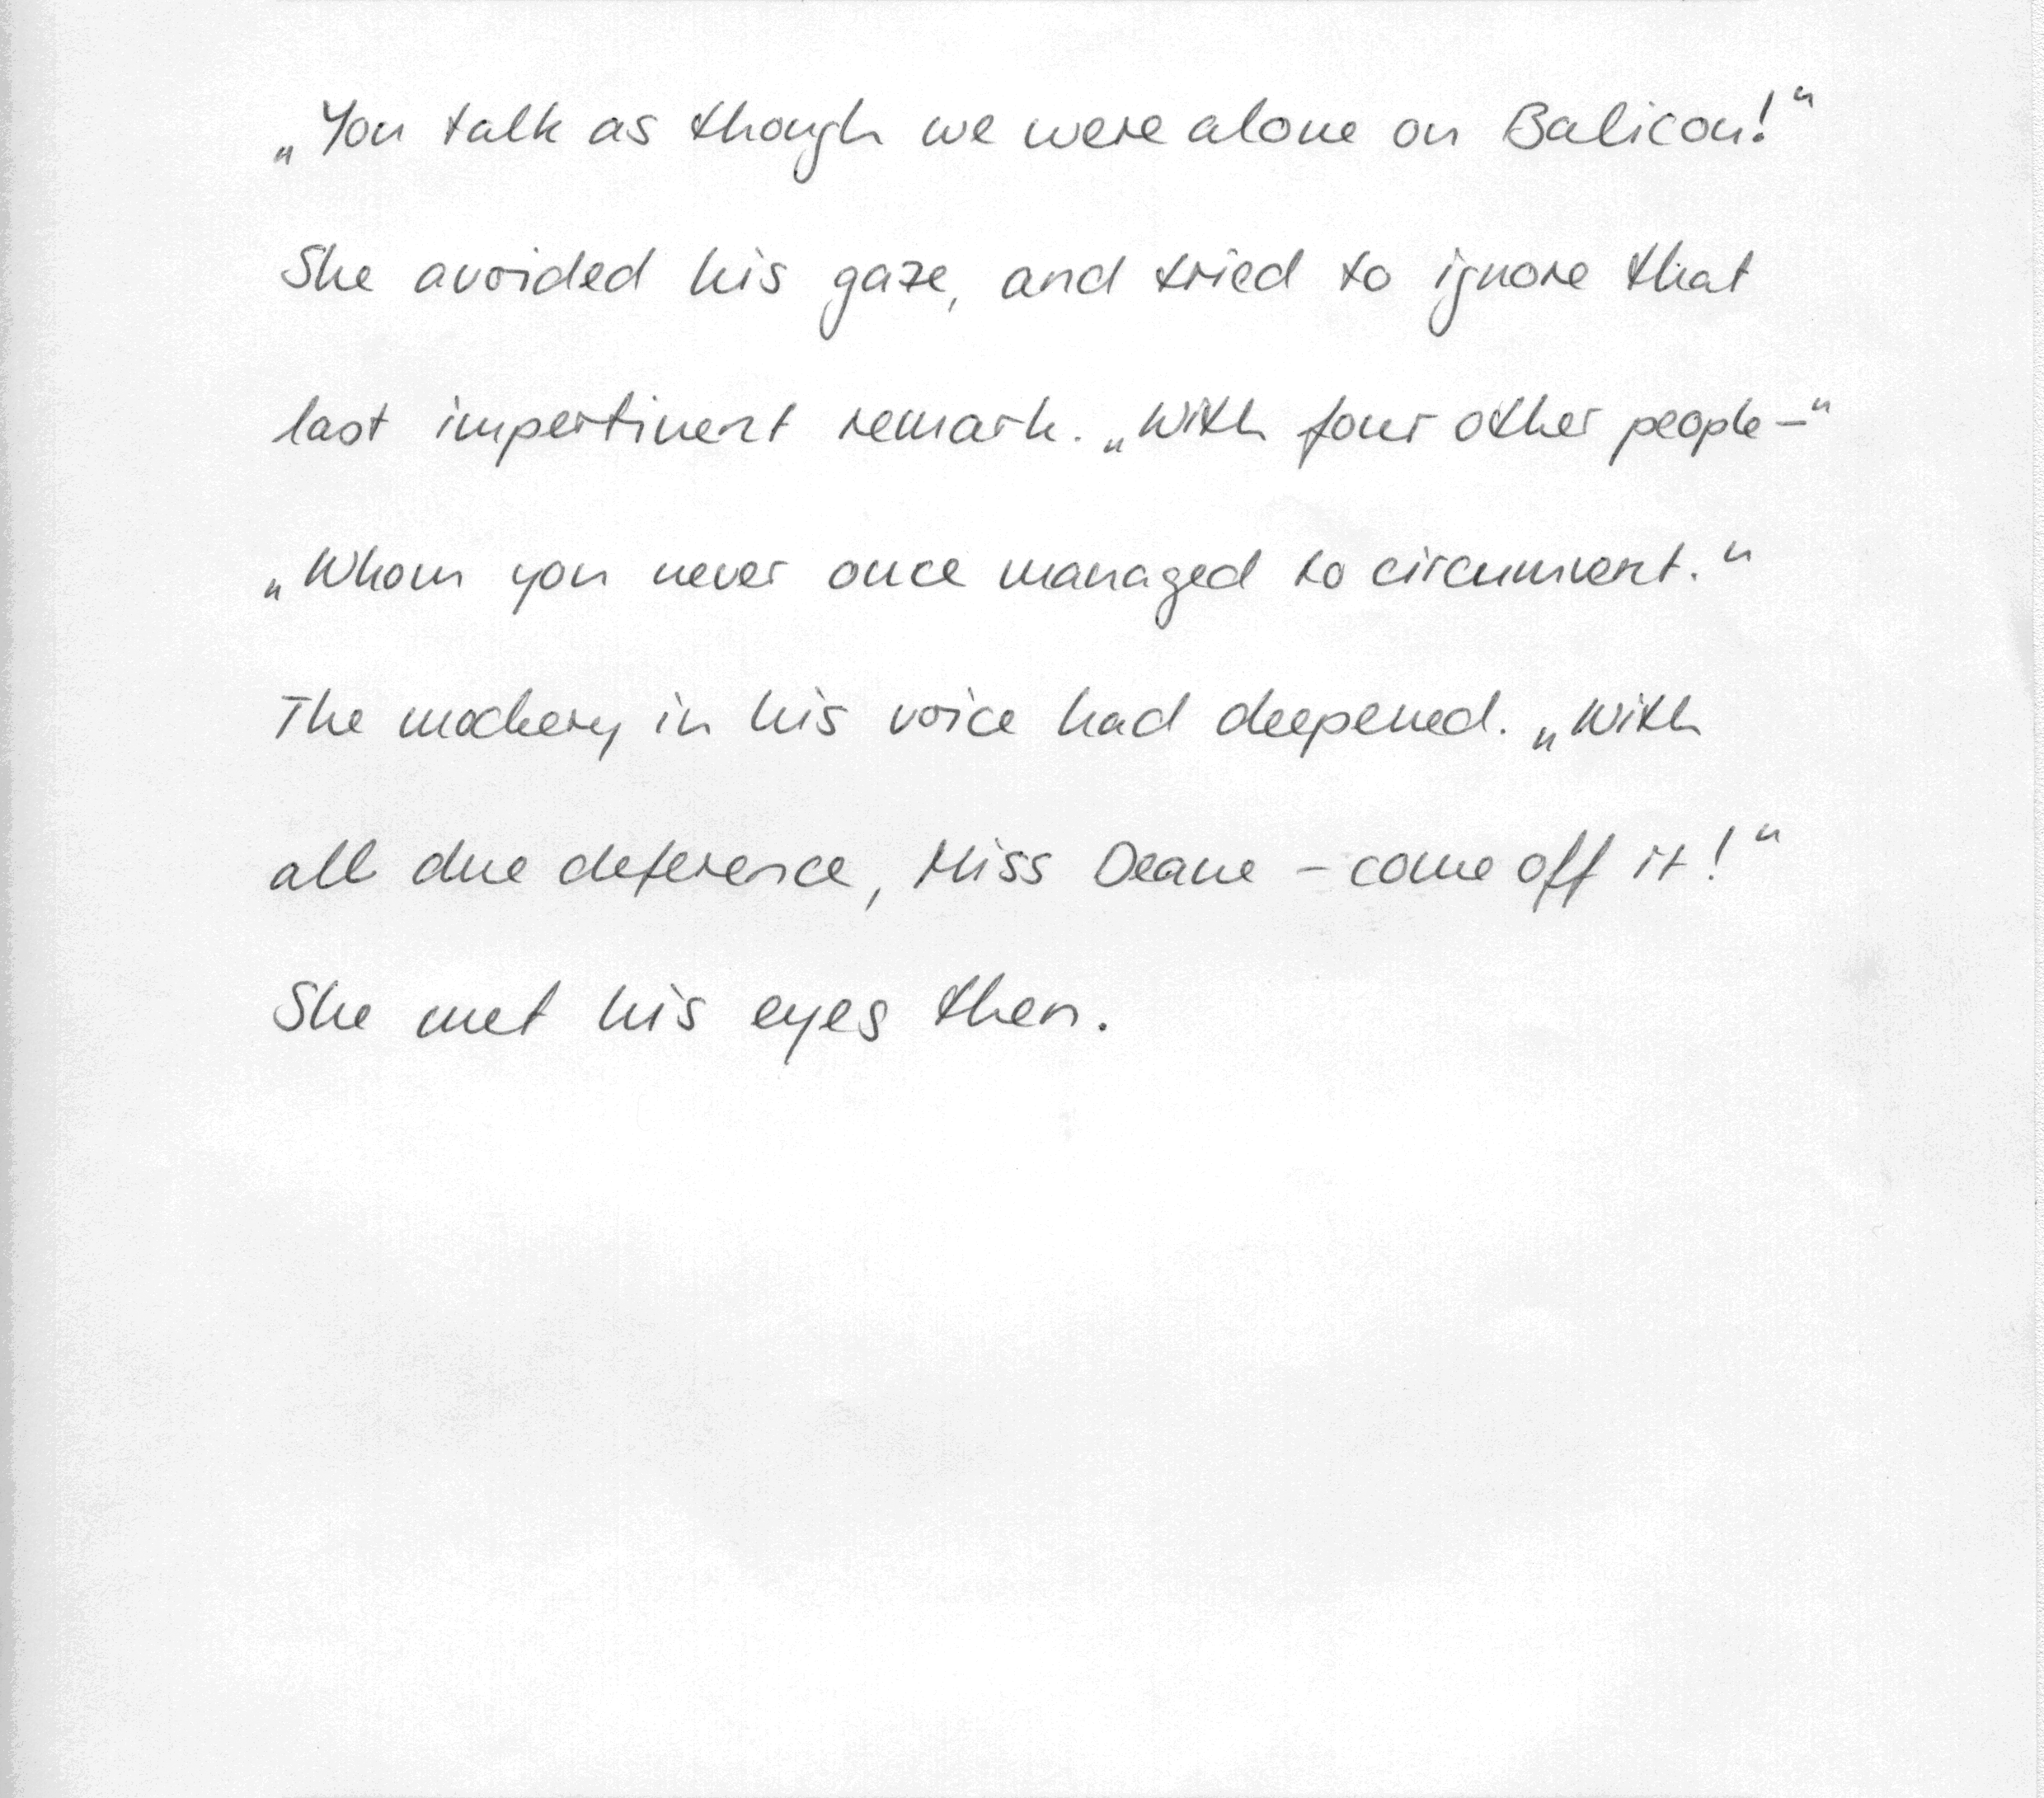 „You talk as though we were alone on Balicon!“
She avoided his gaze, and tried to ignore that
last impertinent remark. „With four other people–“
„Whom you never once managed to circumvent.“
The mockery in his voice had deepened. „With
all due deference, Miss Deane – come off it!“
She met his eyes then.